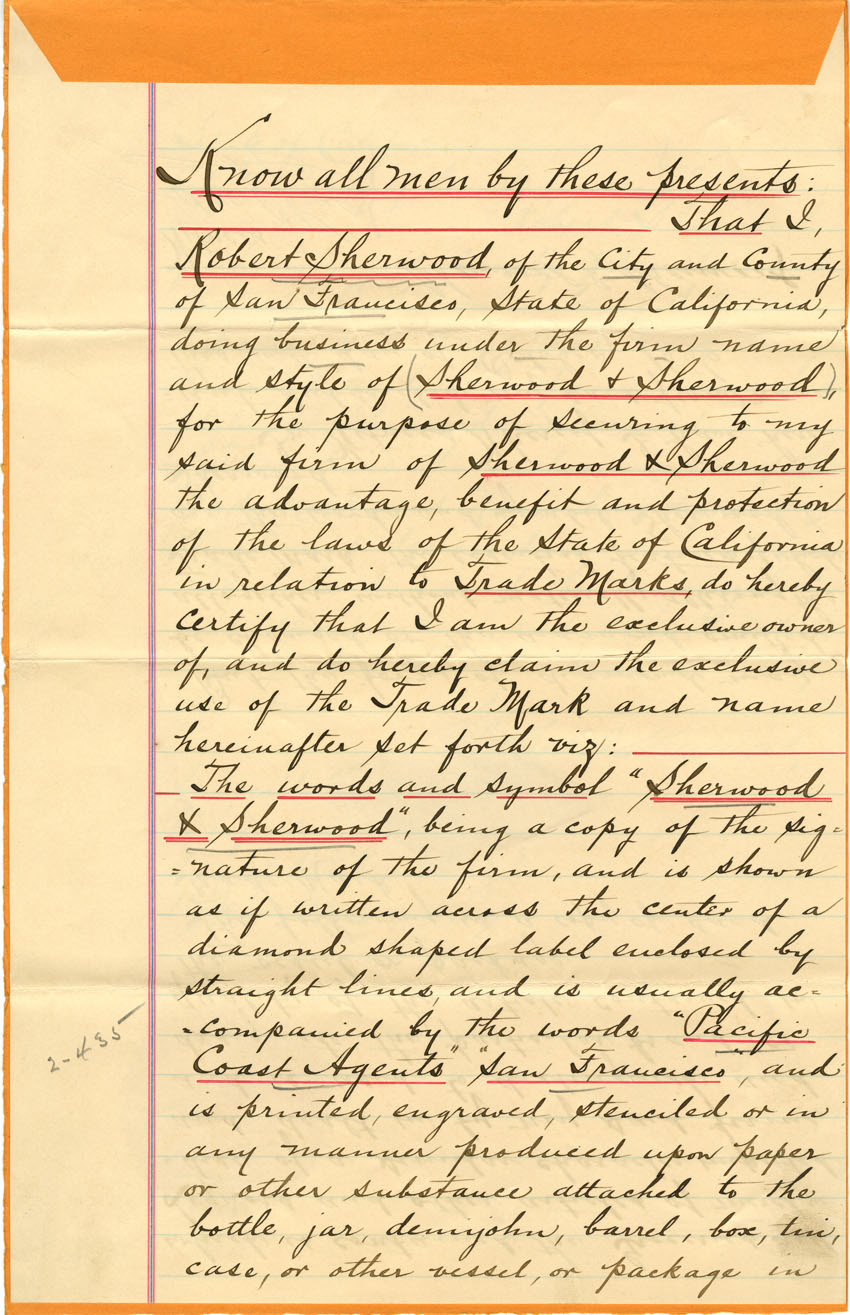 Know all men by these presents:
That I,
Robert Sherwood, of the City and County
of San Francisco, State of California,
doing business under the firm name
and style of (Sherwood & Sherwood),
for the purpose of securing to my
said firm of Sherwood & Sherwood
the advantage, benefit and protection
of the laws of the State of California
in relation to Trade Marks, do hereby
certify that I am the exclusive owner
of, and do hereby claim the exclusive
use of the Trade Mark and name
hereinafter set forth viz:
The words and symbol "Sherwood
& Sherwood", being a copy of the sig=
=nature of the firm, and is shown
as if written across the center of a
diamond shaped label enclosed by
straight lines, and is usually ac=
=companied by the words "Pacific
Coast Agents" "San Francisco", and
is printed, engraved, stenciled or in
any manner produced upon paper
or other substance attached to the
bottle, jar, demijohn, barrel, box, tin,
case, or other vessel, or package in
2-435